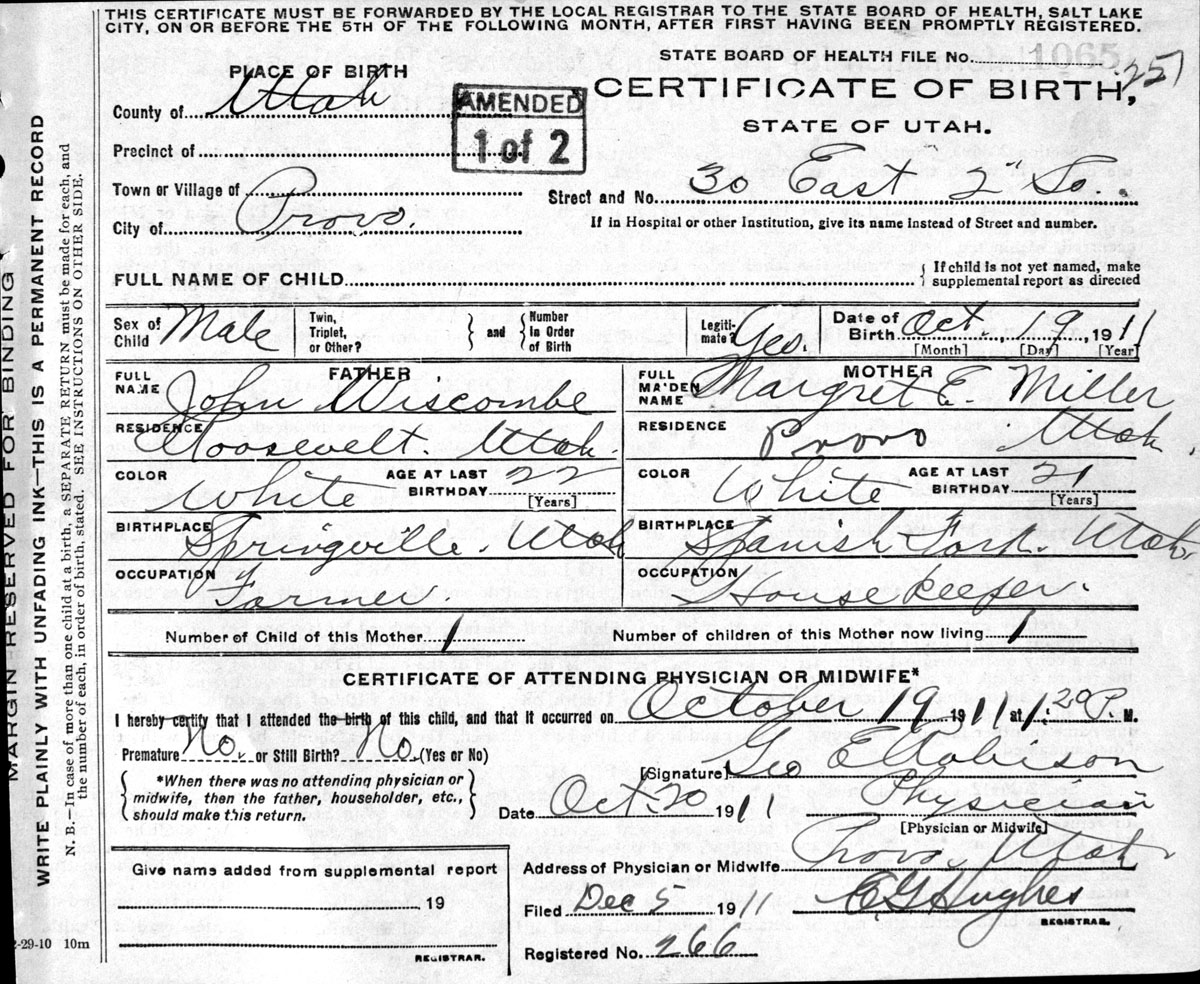 THIS CERTIFICATE MUST BE FORWARDED BY THE LOCAL REGISTRAR TO THE STATE BOARD OF HEALTH, SALT LAKE
CITY, ON OR BEFORE THE 5TH OF THE FOLLOWING MONTH, AFTER FIRST HAVING BEEN PROMPTLY REGISTERED.
STATE BOARD OF HEALTH FILE No. 1065
251
PLACE OF BIRTH
CERTIFICATE OF BIRTH,
STATE OF UTAH.
County of Utah
AMENDED
1 of 2
Precinct of
Town or Village of
City of Provo.
Street and No. 30 East 2" So.
If in Hospital or other Institution, give its name instead of Street and number.
FULL NAME OF CHILD
{ If child is not yet named, make
supplemental report as directed
Sex of Child Male
Twin, Triplet, or Other? } and { Number in Order of Birth
Legiti- mate? Yes.
Date of Birth Oct. 19, 1911
[Month] [Day] [Year]
FATHER
FULL NAME John Wiscombe
RESIDENCE Roosevelt. Utah.
COLOR White AGE AT LAST BIRTHDAY 22 [Years]
BIRTHPLACE Springville. Utah
OCCUPATION Farmer
MOTHER
FULL MAIDEN NAME Margret E. Miller
RESIDENCE Provo Utah.
COLOR White AGE AT LAST BIRTHDAY 21 [Years]
BIRTHPLACE Spanish Fork. Utah.
OCCUPATION House keeper.
Number of Child of this Mother 1 Number of children of this Mother now living 1
CERTIFICATE OF ATTENDING PHYSICIAN OR MIDWIFE*
I hereby certify that I attended the birth of this child, and that it occurred on October 19 1911 at 1:20 P. M.
Premature No. or Still Birth? No. (Yes or No)
{ *When there was no attending physician or
midwife, then the father, householder, etc.,
should make this return. }
[Signature] Geo E Robison
Date Oct. 20 1911 Physician
[Physician or Midwife]
Address of Physician or Midwife Provo, Utah
Give name added from supplemental report
19
REGISTRAR.
Filed Dec 5 1911 E G Hughes
REGISTRAR.
Registered No. 266
2-29-10 10m
MARGIN RESERVED FOR BINDING
WRITE PLAINLY WITH UNFADING INK—THIS IS A PERMANENT RECORD
N. B.—In case of more than one child at a birth, a SEPARATE RETURN must be made for each, and
the number of each, in order of birth, stated. SEE INSTRUCTIONS ON OTHER SIDE.